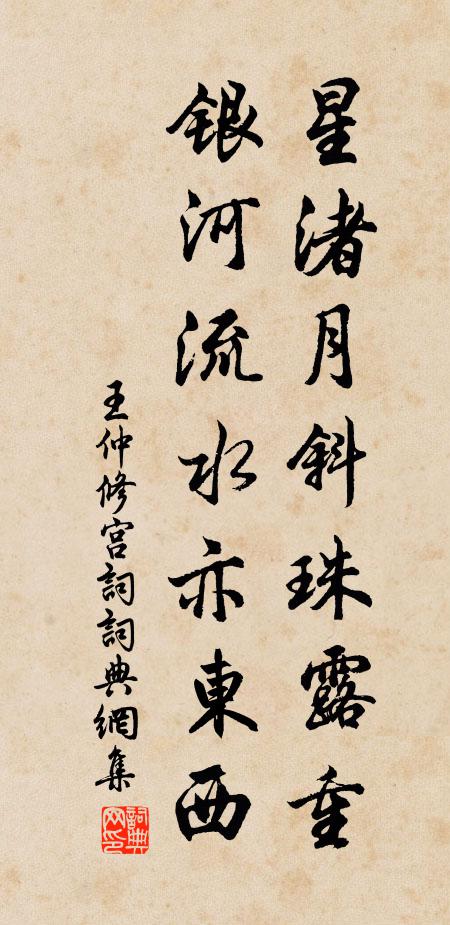 星渚月斜珠露重
銀河流水亦東西
王仲修宮詞詞典網集
詞典
网印